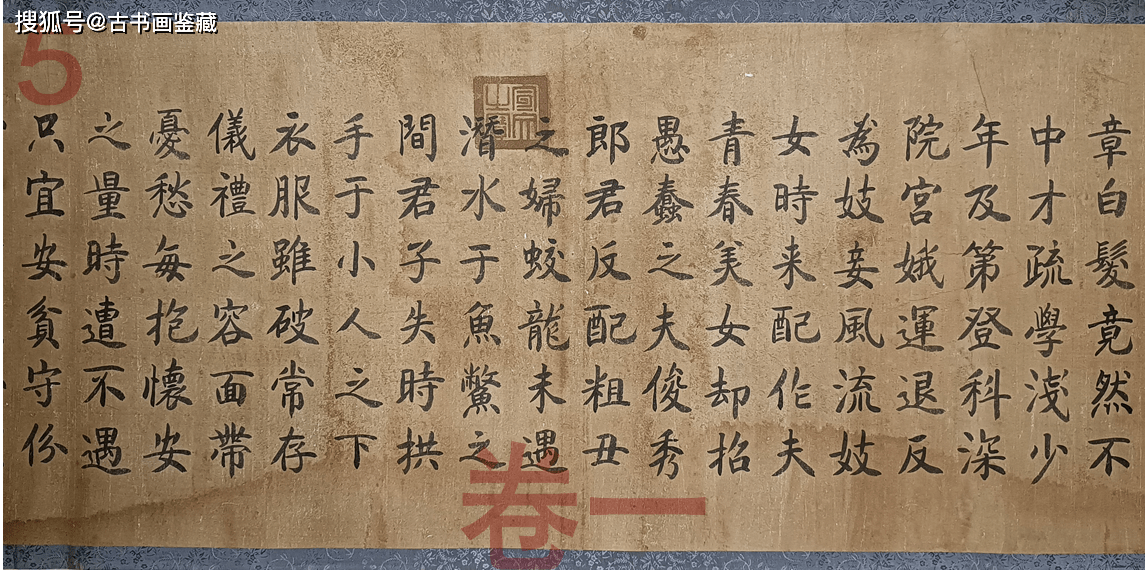 搜狐号@古书画鉴藏
5
章白髮竟然不
中才疏學淺少
年及第登科深
院宮娥運退反
為妓妾風流妓
女時来配作夫
青春美女却招
愚蠢之夫俊秀
郎君反配粗丑
之婦蛟龍未遇
潛水于魚鱉之
間君子失時拱
手于小人之下
衣服雖破常存
儀禮之容面帶
憂愁每抱懷安
之量時遭不遇
只宜安貧守份
卷一